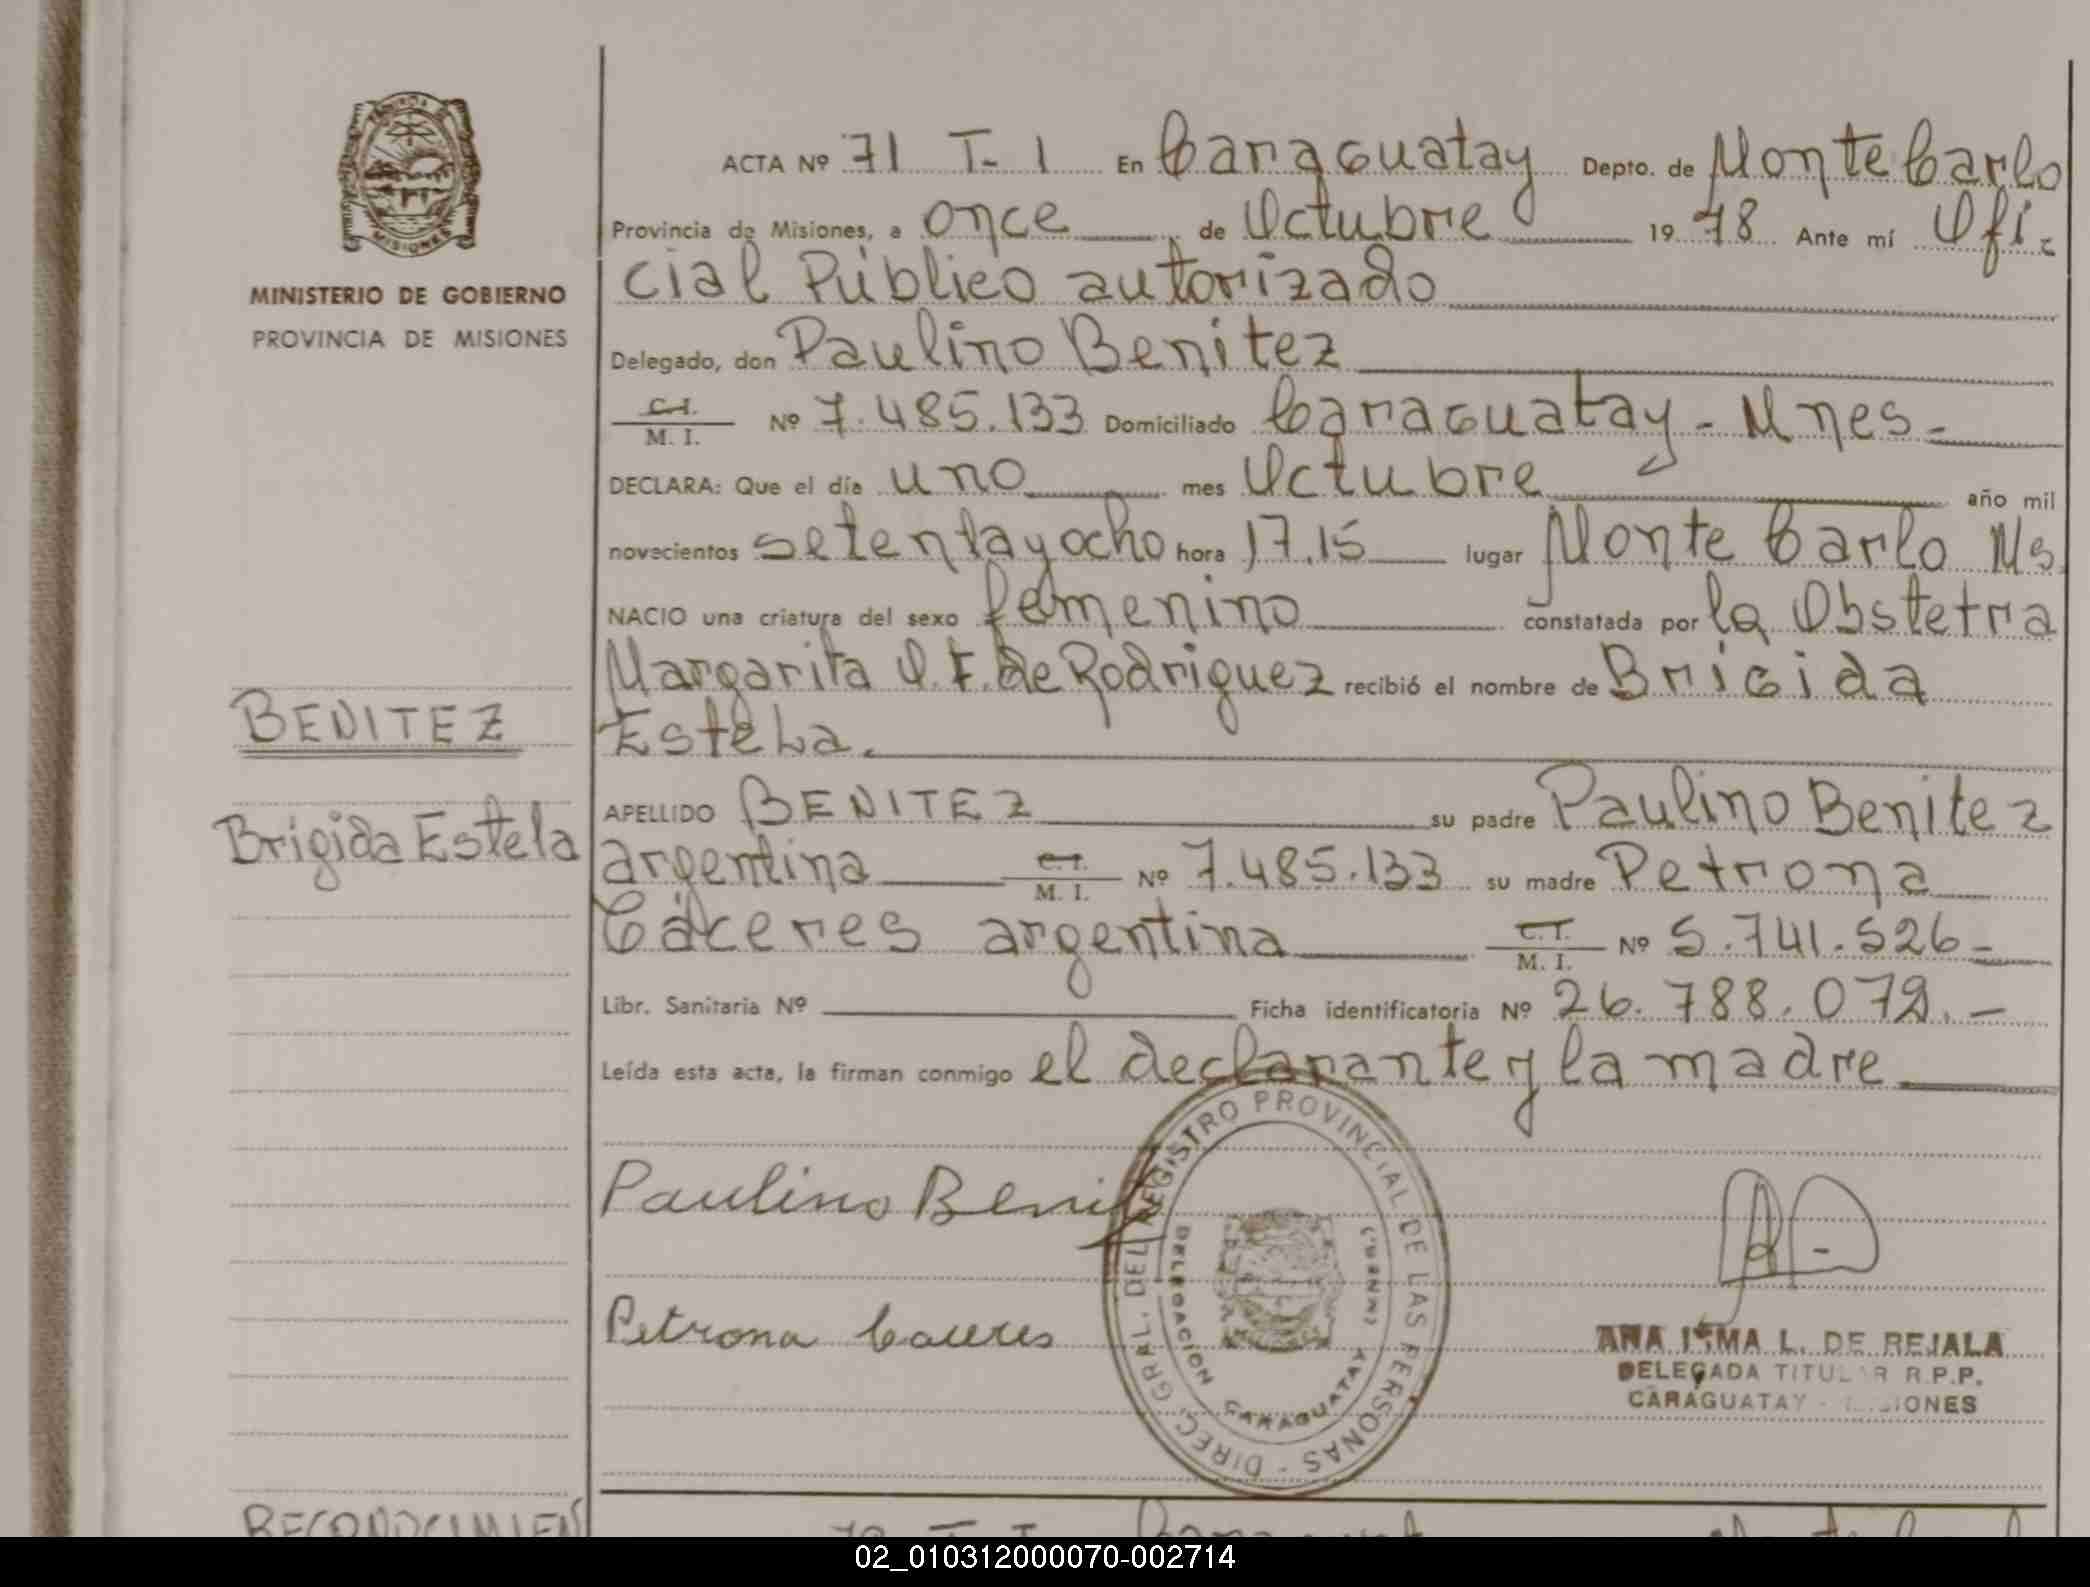 MISIONES
MINISTERIO DE GOBIERNO
PROVINCIA DE MISIONES
BENITEZ
Brigida Estela
ACTA Nº 71 T-1 En Caraguatay Depto. de Monte Carlo
Provincia de Misiones, a once de Octubre 1978 Ante mí Ofi-
cial Público autorizado
Delegado, don Paulino Benitez
C.I. M. I. Nº 7.485.133 Domiciliado Caraguatay - Mnes-
DECLARA: Que el día uno mes Octubre año mil
novecientos setentayocho hora 17.15 lugar Monte Carlo Ms.
NACIO una criatura del sexo femenino constatada por la Obstetra
Margarita O.F. de Rodriguez recibió el nombre de Brigida
Estela.
APELLIDO BENITEZ su padre Paulino Benitez
argentina C.I. M. I. Nº 7.485.133 su madre Petrona
Cáceres argentina C.I. M. I. Nº 5.741.526-
Libr. Sanitaria Nº Ficha identificatoria Nº 26.788.072.-
Leída esta acta, la firman conmigo el declarante y la madre
Paulino Benitez
Petrona Caceres
DIREC. GRAL. DEL REGISTRO PROVINCIAL DE LAS PERSONAS -
DELEGACION CARAGUATAY
ANA IRMA L. DE REJALA
DELEGADA TITULAR R.P.P.
CARAGUATAY - MISIONES
RECONOCIMIEN
02_010312000070-002714